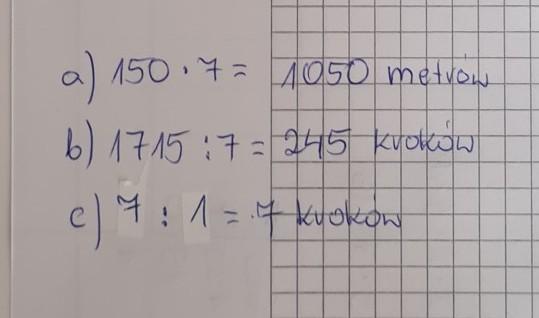 a) 150 · 7 = 1050 metrów
b) 1715 : 7 = 245 kroków
c) 7 : 1 = 7 kroków